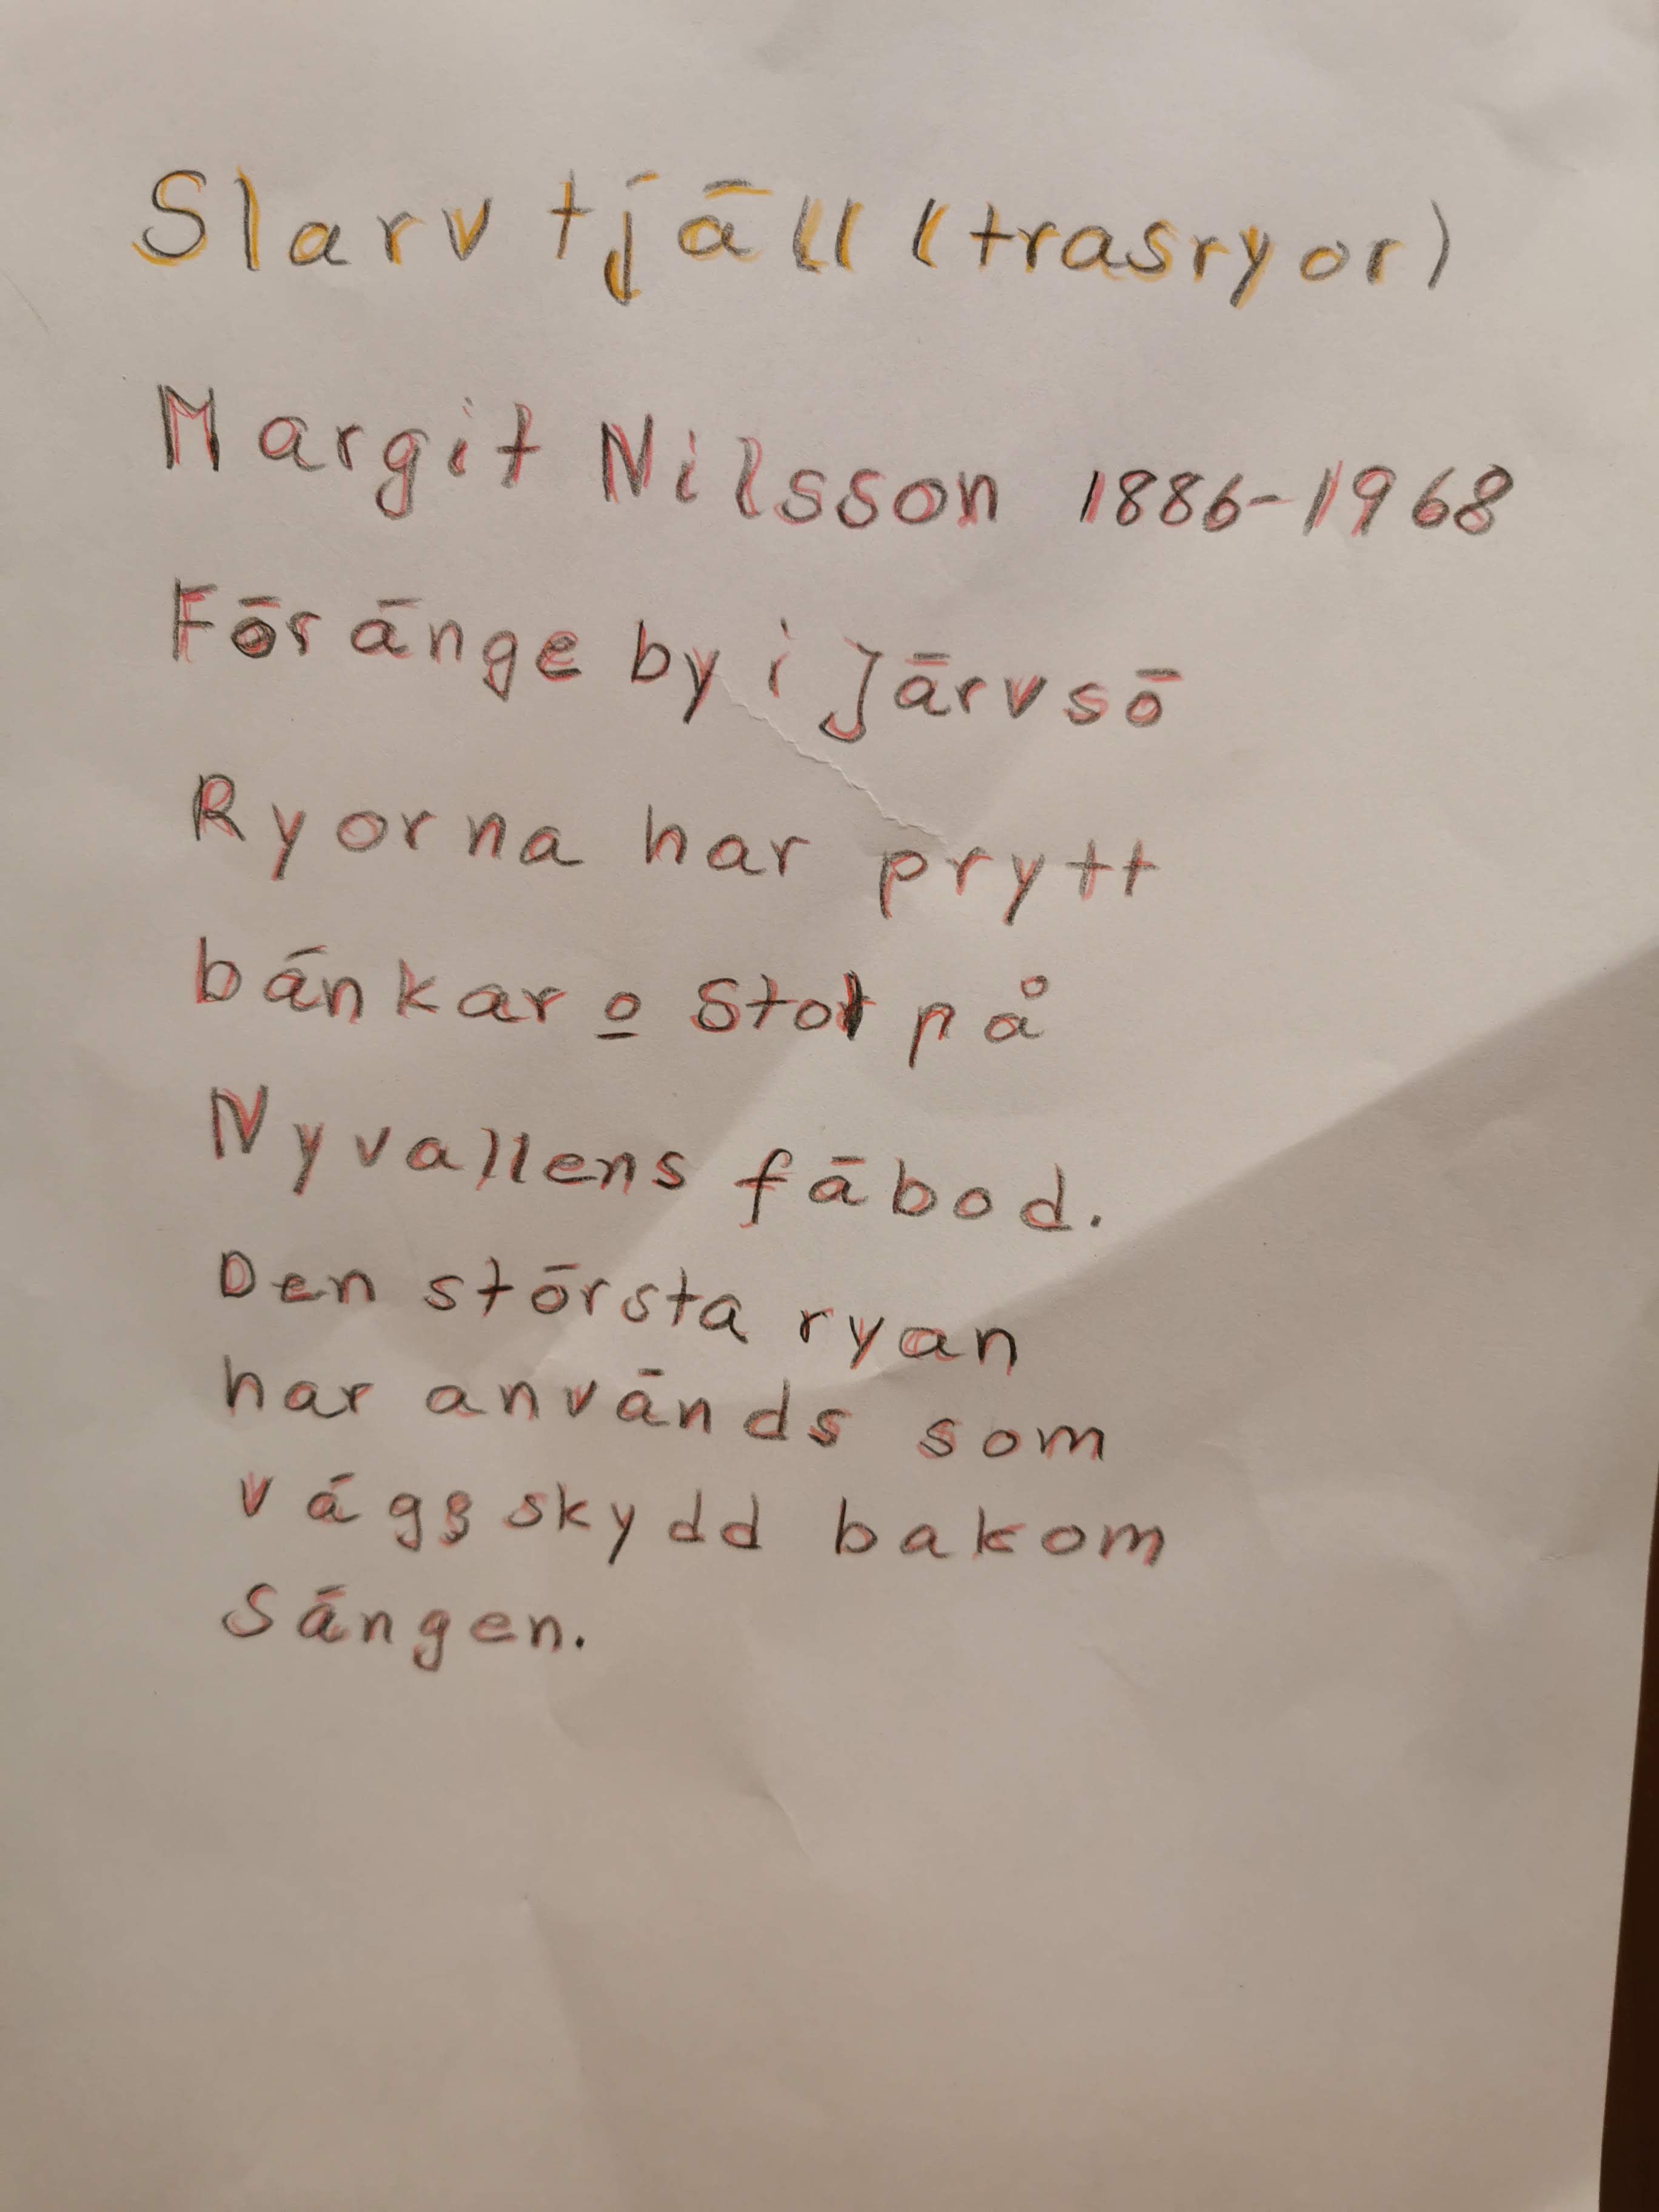 Slarv tjäll (trasryor)
Margit Nilsson 1886-1968
Föränge by i Järvsö
Ryorna har prytt
bänkar o stol på
Nyvallens fäbod.
Den största ryan
har används som
vägsskydd bakom
Sängen.